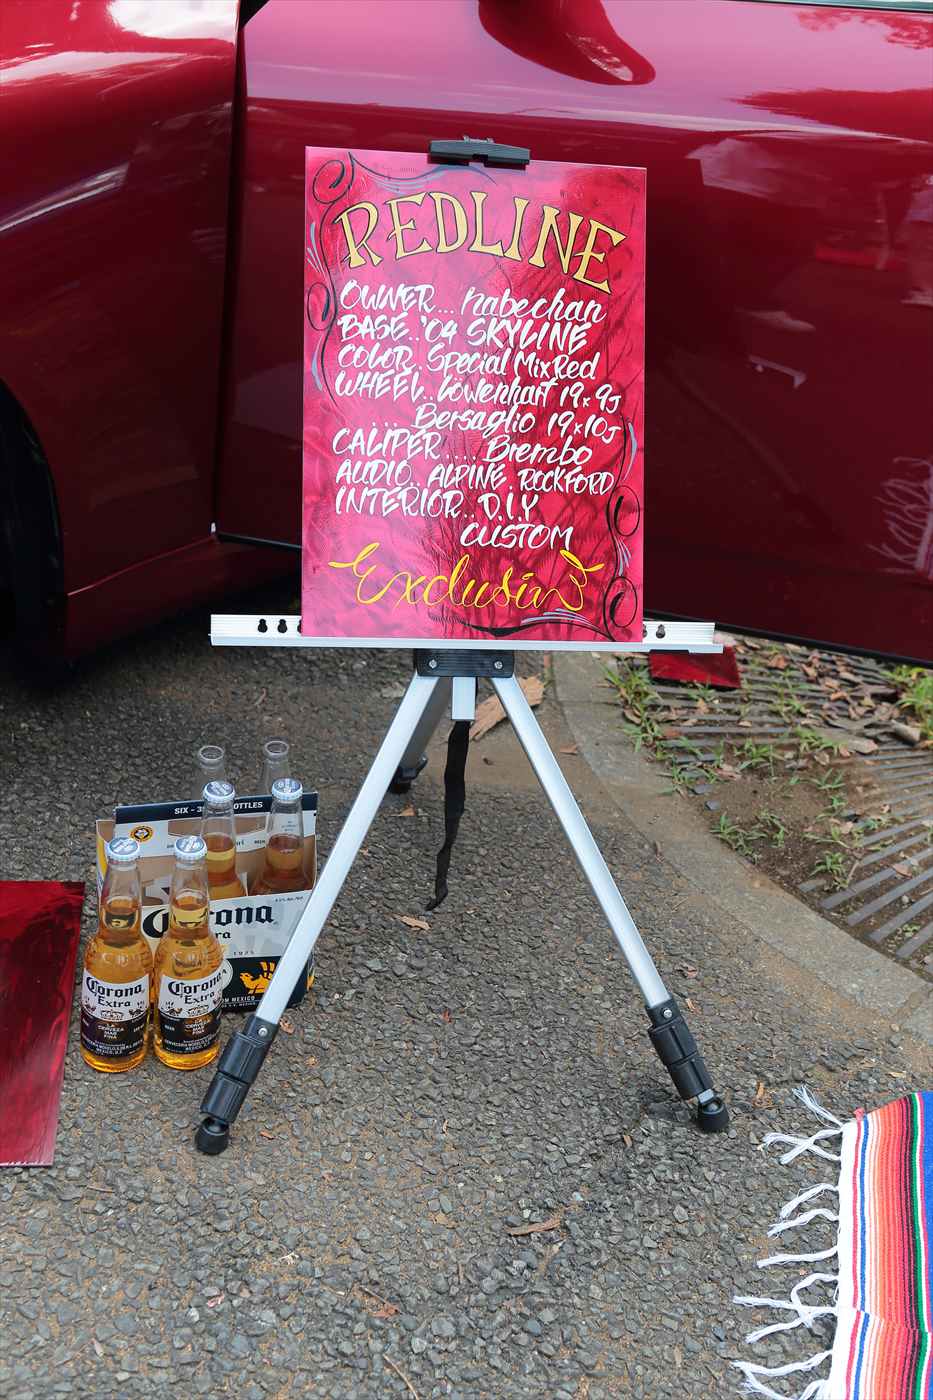 REDLINE
OWNER... nabechan
BASE..'04 SKYLINE
COLOR..Special Mix Red
WHEEL..Löwenhart 19x9J
... Bersaglio 19x10J
CALIPER..... Brembo
AUDIO.. ALPINE, ROCKFORD
INTERIOR.. D.I.Y
CUSTOM
Exclusiv
SIX - 
BOTTLES
Corona
Extra
Corona
Extra
LA
CERVEZA
MAS
FINA
Corona
Extra
LA
CERVEZA
MAS
FINA
MEXICO